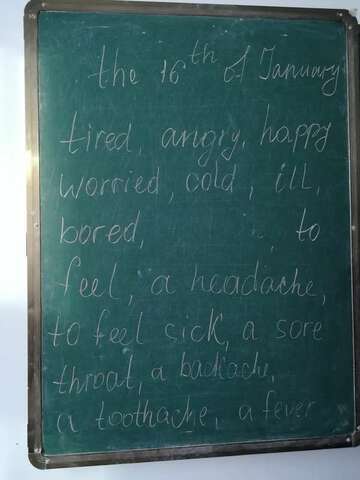 the 16th of January
tired, angry, happy
worried, cold, ill,
bored, to
feel, a headache,
to feel sick, a sore
throat, a backache,
a toothache, a fever